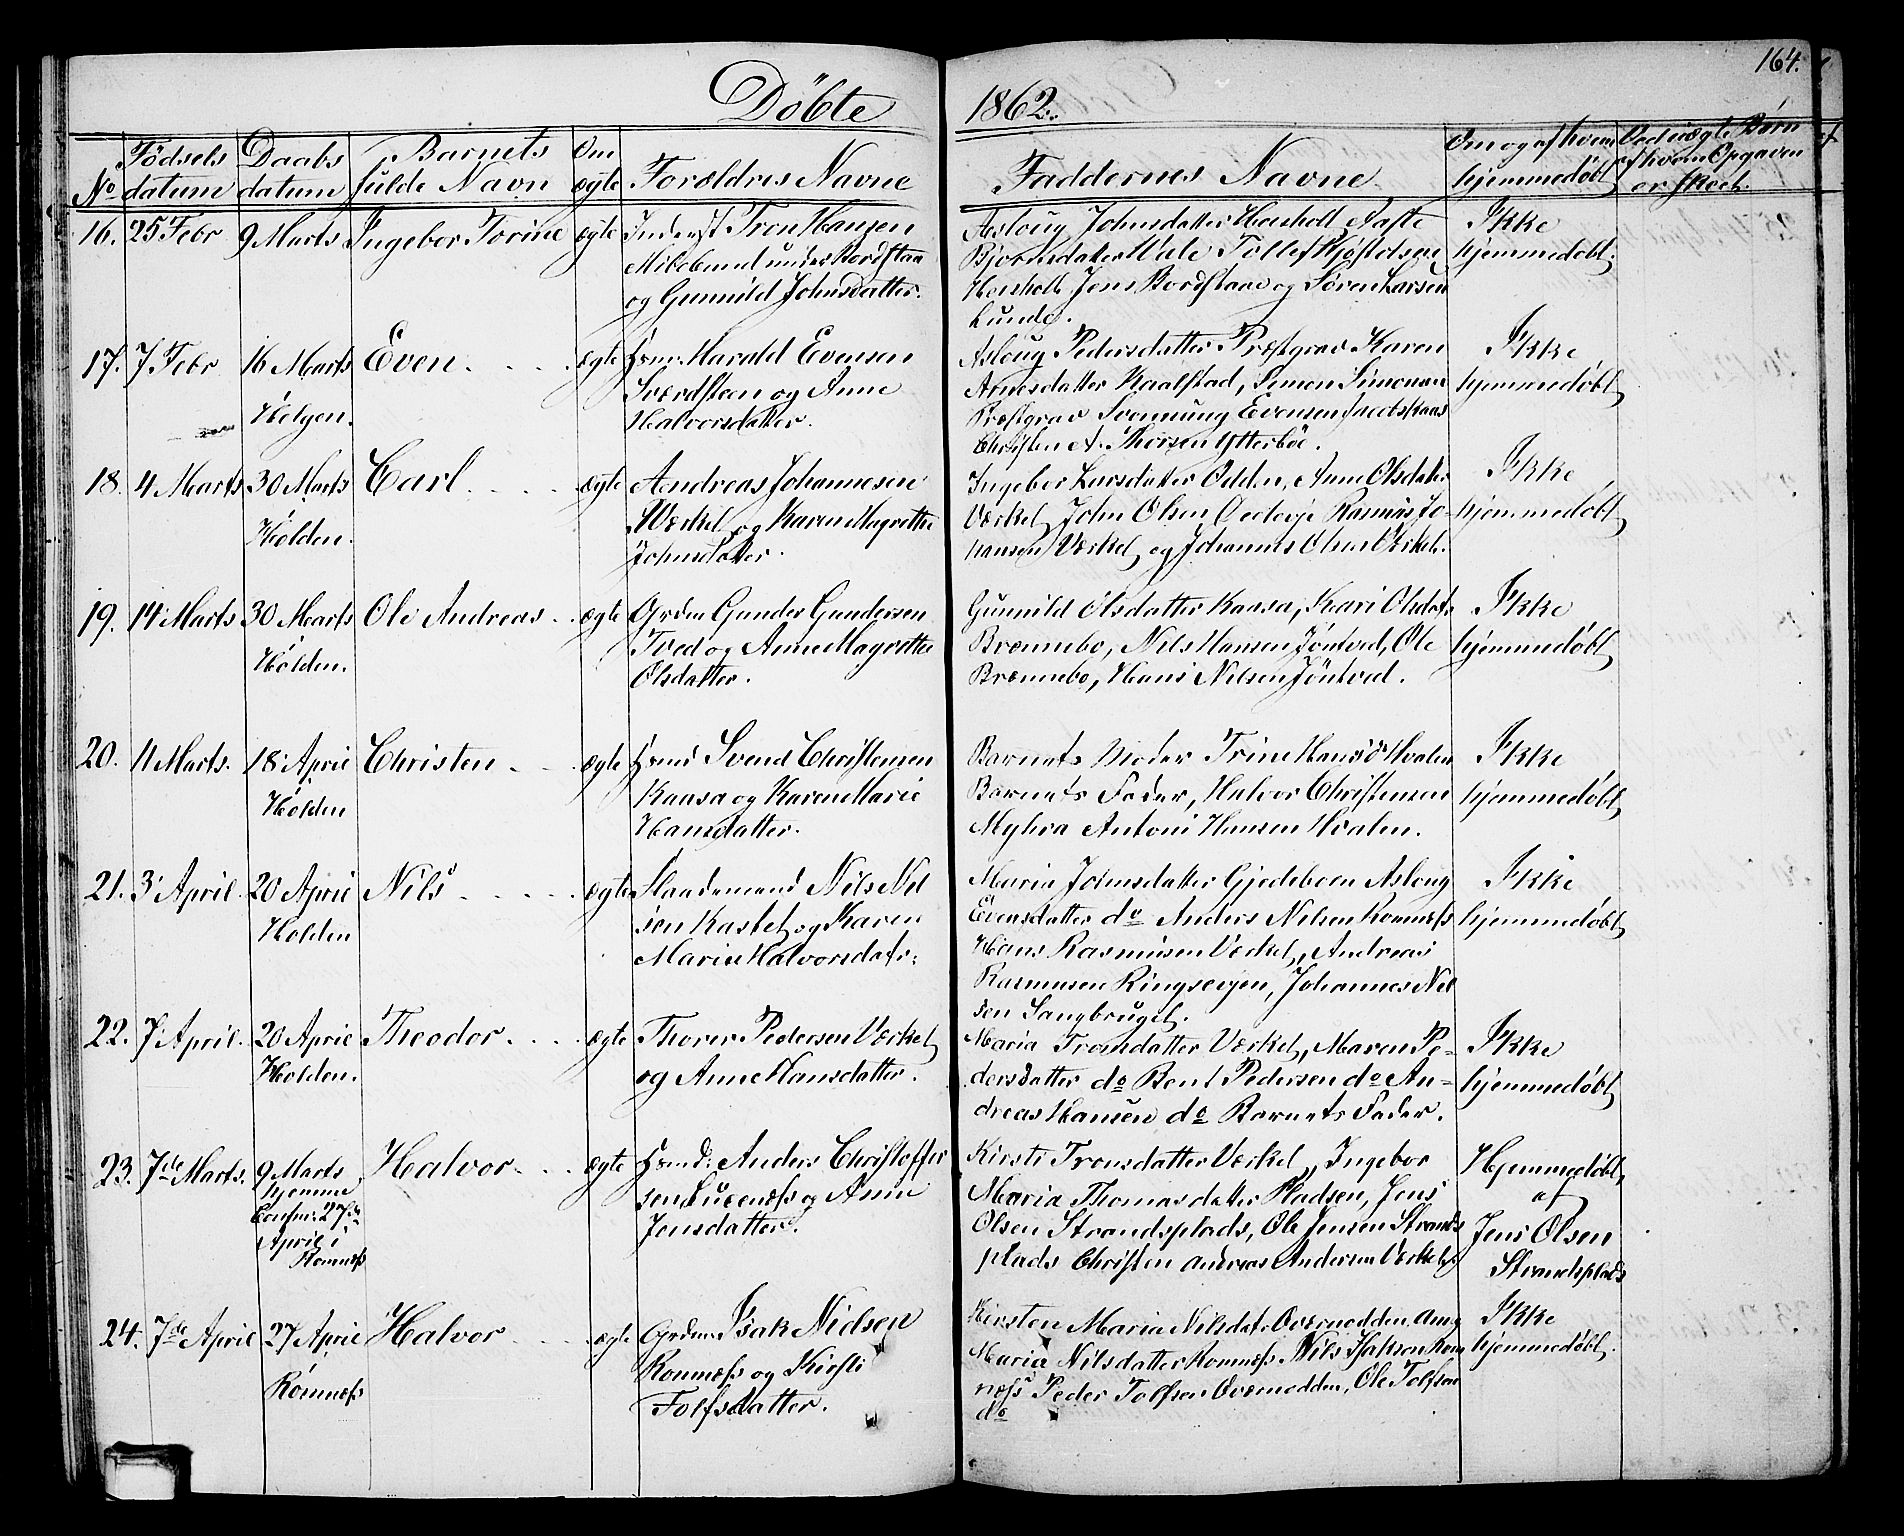 164.
Döbte 1862.
No Födsels datum Daabs datum Barnets fulde Navn Om ægte Forældres Navne Faddernes Navne Om og af hvem hjemmedøbt Ved uægte Børn af hvem Opgaven er skeet.
16. 25 Febr 9 Marts Ingebor Torine ægte Inderst Tron Hansen
og Gunnild Johnsdatter.
Aasloug Johnsdatter Heisholt Aaste
Heisholt Jens Bordstaae og Sören Larsen
Lunde.
Ikke
hjemmedøbt.
17. 7 Febr 16 Marts
Helgen.
Even ægte Hsmd: Harald Evensen
Sværdsteen og Anne
Halvorsdatter.
Asloug Pedersdatter Præstgrav Karen
Arnesdatter Kaalstad, Simon Simonsen
Præstgrav Svennung Evensen Jacobskaas
Christen A. Thorsen Ytterböe.
Ikke
hjemmedøbt
18. 4 Marts 30 Marts
Hölden.
Carl ægte Andreas Johannesen
Værket og Karen Magrethe
Johnsdatter.
Ingebor Larsdatter Odden, Anne Olsdatter
Værket, John Olsen Rasmus Jo-
hansen Værket og Johannes Olsen Værket.
Ikke
hjemmedøbt
19. 14 Marts 30 Marts
Hölden.
Ole Andreas ægte Grdm Gunder Gundersen
Tved og Anne Magrethe
Olsdatter.
Gunnild Olsdatter Kaasa, Kari Olsdatr
Brennebo, Nils Hansen Jöntved, Ole
Brennebo, Hans Nilsen Jöntved.
Ikke
hjemmedøbt
20. 11 Marts. 18 April
Hölden
Christen ægte Hsmd Svend Christensen
Kaasa og Karen Marie
Hansdatter.
Barnets Moder Trine Hansdr Hvalen
Barnets Fader, Halvor Christensen
Myhra Antoni Hansen Hvalen.
Ikke
hjemmedøbt
21. 3 April. 20 April
Holden
Nils ægte Strandsmand Nils Nil
sen Kastet og Karen
Maria Halvorsdatr:
Maria Johnsdatter Gjedeboen Asloug
Evensdatter do Anders Nilsen Romnæss
Hans Rasmusen Værket, Andreas
Rasmusen Ringsevjen, Johannes Nil
sen Sangbruget.
Ikke
hjemmedøbt
22. 7 April. 20 April
Holden.
Theodor ægte Thorer Pedersen Værket
og Anne Hansdatter.
Maria Tronsdatter Værket, Maren Pe-
dersdatter do Bent Pedersen do An-
dreas Hansen do Barnets Fader.
Ikke
hjemmedøbt
23. 7de Marts. 9 Marts
hjemme
Confir: 27de
April i
Römnæs
Halvor ægte Hsmd: Anders Christoffer
sen Lurenæss og Anne
Jensdatter.
Kirsti Tronsdatter Værket, Ingebor
Maria Thomasdatter Pladsen, Jens
Olsen Strandsplads, Ole Jensen Strands
plads Christen Andreas Andersen Værket
Hjemmedøbt,
af
Jens Olsen
Strandsplads
24. 7de April 27 April
Römnæss
Halvor ægte Grdm: Isak Nielsen
Romnæss og Kirsti
Tolfsdatter.
Kirsten Maria Nilsdatr Overnedden
Maria Nilsdatter Romnæss Nils Isaksen Rom
næss Peder Tolfsen Overnedden, Ole Tolfsen
do
Ikke
hjemmedøbt.